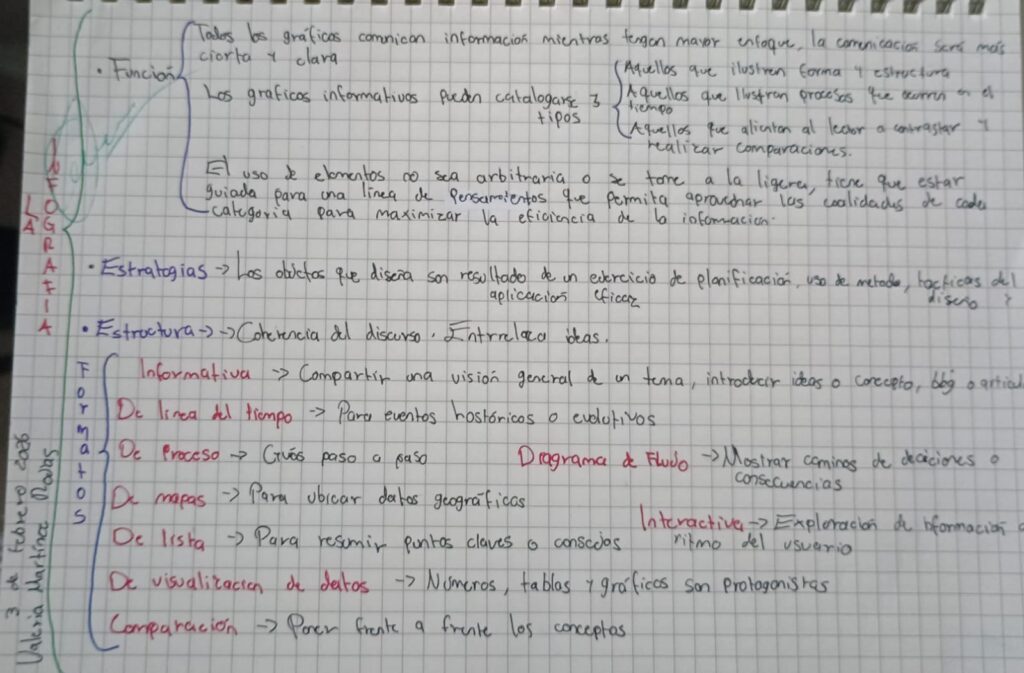 LA INFOGRAFIA
3 de febrero 2026
Valeria Martínez
• Función
Todos los gráficos comunican información mientras tengan mayor enfoque, la comunicación será más
cierta y clara
Los graficos informativos pueden catalogarse 3
tipos
Aquellos que ilustren forma y estructura
Aquellos que ilustran procesos que ocurren en el
tiempo
Aquellos que alienten al lector a contrastar y
realizar comparaciones.
El uso de elementos no sea arbitraria o se tome a la ligera, tiene que estar
guiada para una línea de pensamientos que permita aprovechar las cualidades de cada
categoria para maximizar la eficiencia de la informacion.
• Estrategias → Los objetos que diseña son resultado de un ejercicio de planificación, uso de metodo, tacticas del
diseño y
aplicacion eficaz
• Estructura → → Coherencia del discurso. Entrelaza ideas.
Formatos
Informativa → Compartir una visión general de un tema, introducir ideas o concepto, blog o articul
De linea del tiempo → Para eventos hostóricos o evolutivos
De proceso → Guías paso a paso
Diagrama de Fludo → Mostrar caminos de deciciones o
consecuencias
De mapas → Para ubicar datos geográficos
Interactiva → Exploración de nformacion
ritmo del usuario
De lista → Para resumir puntos claves o consejos
De visualizacion de datos → Números, tablas y gráficos son protagonistas
Comparacion → Poner frente a frente los conceptos